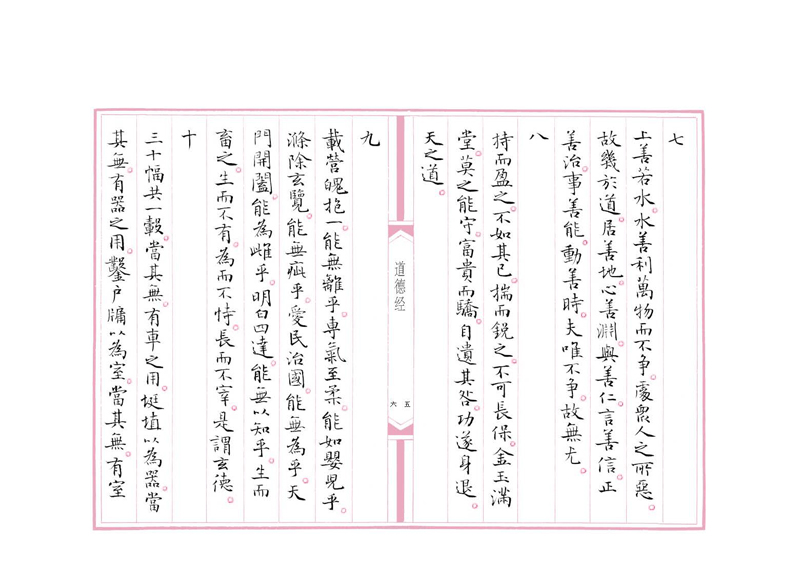 七
上善若水。水善利萬物而不争。處衆人之所惡。
故幾於道。居善地。心善淵。與善仁。言善信。正
善治。事善能。動善時。夫唯不争。故無尤。
八
持而盈之。不如其已。揣而銳之。不可長保。金玉滿
堂。莫之能守。富貴而驕。自遺其咎。功遂身退。
天之道。
道德经
五
六
九
載營魄抱一。能無離乎。專氣至柔。能如嬰兒乎。
滌除玄覽。能無疵乎。愛民治國。能無為乎。天
門開闔。能為雌乎。明白四達。能無以知乎。生而
畜之。生而不有。為而不恃。長而不宰。是謂玄德。
十
三十幅共一轂。當其無。有車之用。埏埴以為器。當
其無。有器之用。鑿户牖以為室。當其無。有室